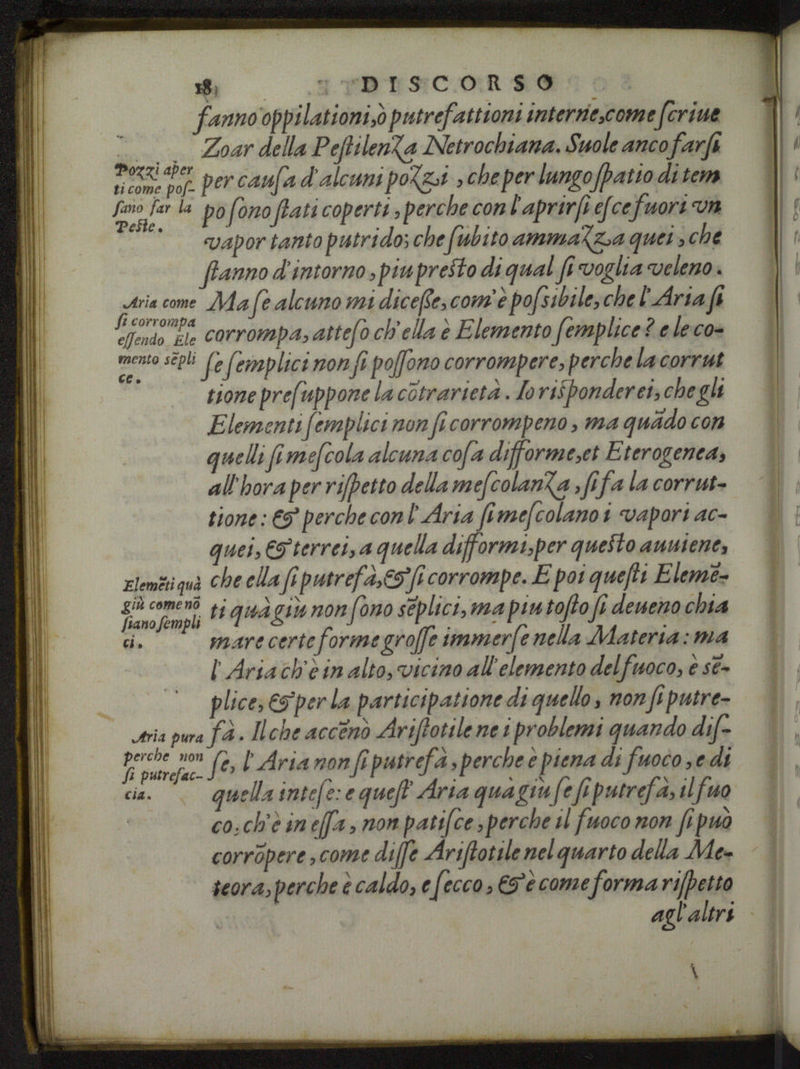 18 DISCORSO
fanno oppilationi,ò putrefattioni interne,come ſcriue
Zoar della Peſtilenza Netrochiana. Suole anco farſi
per cauſa d'alcuni pozzi , che per lungo ſpatio di tem
po ſono ſtati coperti , perche con l'aprirſi eſce fuori vn
vapor tanto putrido; che ſubito ammazza quei , che
ſtanno d'intorno , piu preſto di qual ſi voglia veleno.
Ma ſe alcuno mi diceſſe, com'è poſsibile, che l'Aria ſi
corrompa, atteſo ch'ella è Elemento ſemplice? e le co-
ſe ſemplici non ſi poſſono corrompere, perche la corrut
tione preſuppone la cōtrarietà. Io riſponderei, che gli
Elementi ſemplici non ſi corrompeno , ma quādo con
quelli ſi meſcola alcuna coſa difforme,et Eterogenea,
all'hora per riſpetto della meſcolanza , ſi fa la corrut-
tione: & perche con l'Aria ſi meſcolano i vapori ac-
quei, & terrei, a quella difformi,per queſto auuiene,
che ella ſi putrefà,& ſi corrompe. E poi queſti Elemē-
ti quà giu non ſono sēplici, ma piu toſto ſi deueno chia
mare certe forme groſſe immerſe nella Materia: ma
l'Aria ch'è in alto, vicino all'elemento del fuoco, è sē-
plice, & per la participatione di quello , non ſi putre-
fà. Il che accēnò Ariſtotile ne i problemi quando diſ-
ſe, l'Aria non ſi putrefà , perche è piena di fuoco , e di
quella inteſe: e queſt'Aria quà giu ſe ſi putrefà, il fuo
co, ch'è in eſſa , non patiſce , perche il fuoco non ſi può
corrōpere , come diſſe Ariſtotile nel quarto della Me-
teora, perche è caldo, e ſecco , & è come forma riſpetto
agl'altri
Pozzi aper
ti come poſ-
ſano far la
Peſte.
Aria come
ſi corrompa
eſſendo Ele
mento sēpli
ce.
Elemēti quà
giù come nō
ſiano ſempli
ci.
Aria pura
perche non
ſi putrefac-
cia.